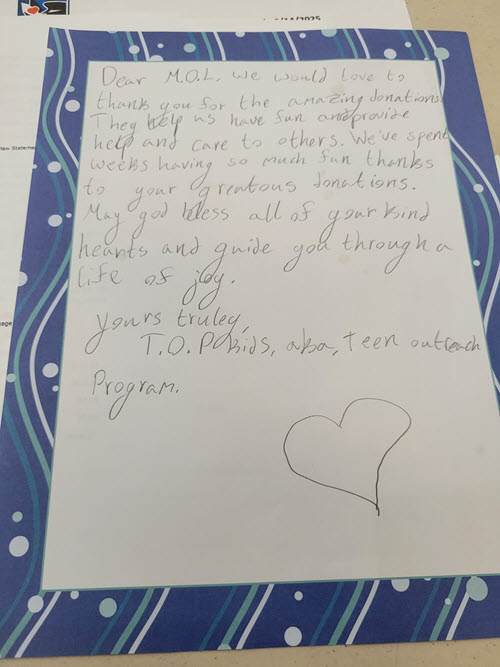 /2025
Dear M.O.L. we would love to
thank you for the amazing donations.
They help us have fun and provide
help and care to others. We've spent
weeks having so much fun thanks
to your greatous donations.
May god bless all of your kind
hearts and guide you through a
life of joy.
yours truley,
T.O.P kids, aba, teen outreach
Program.